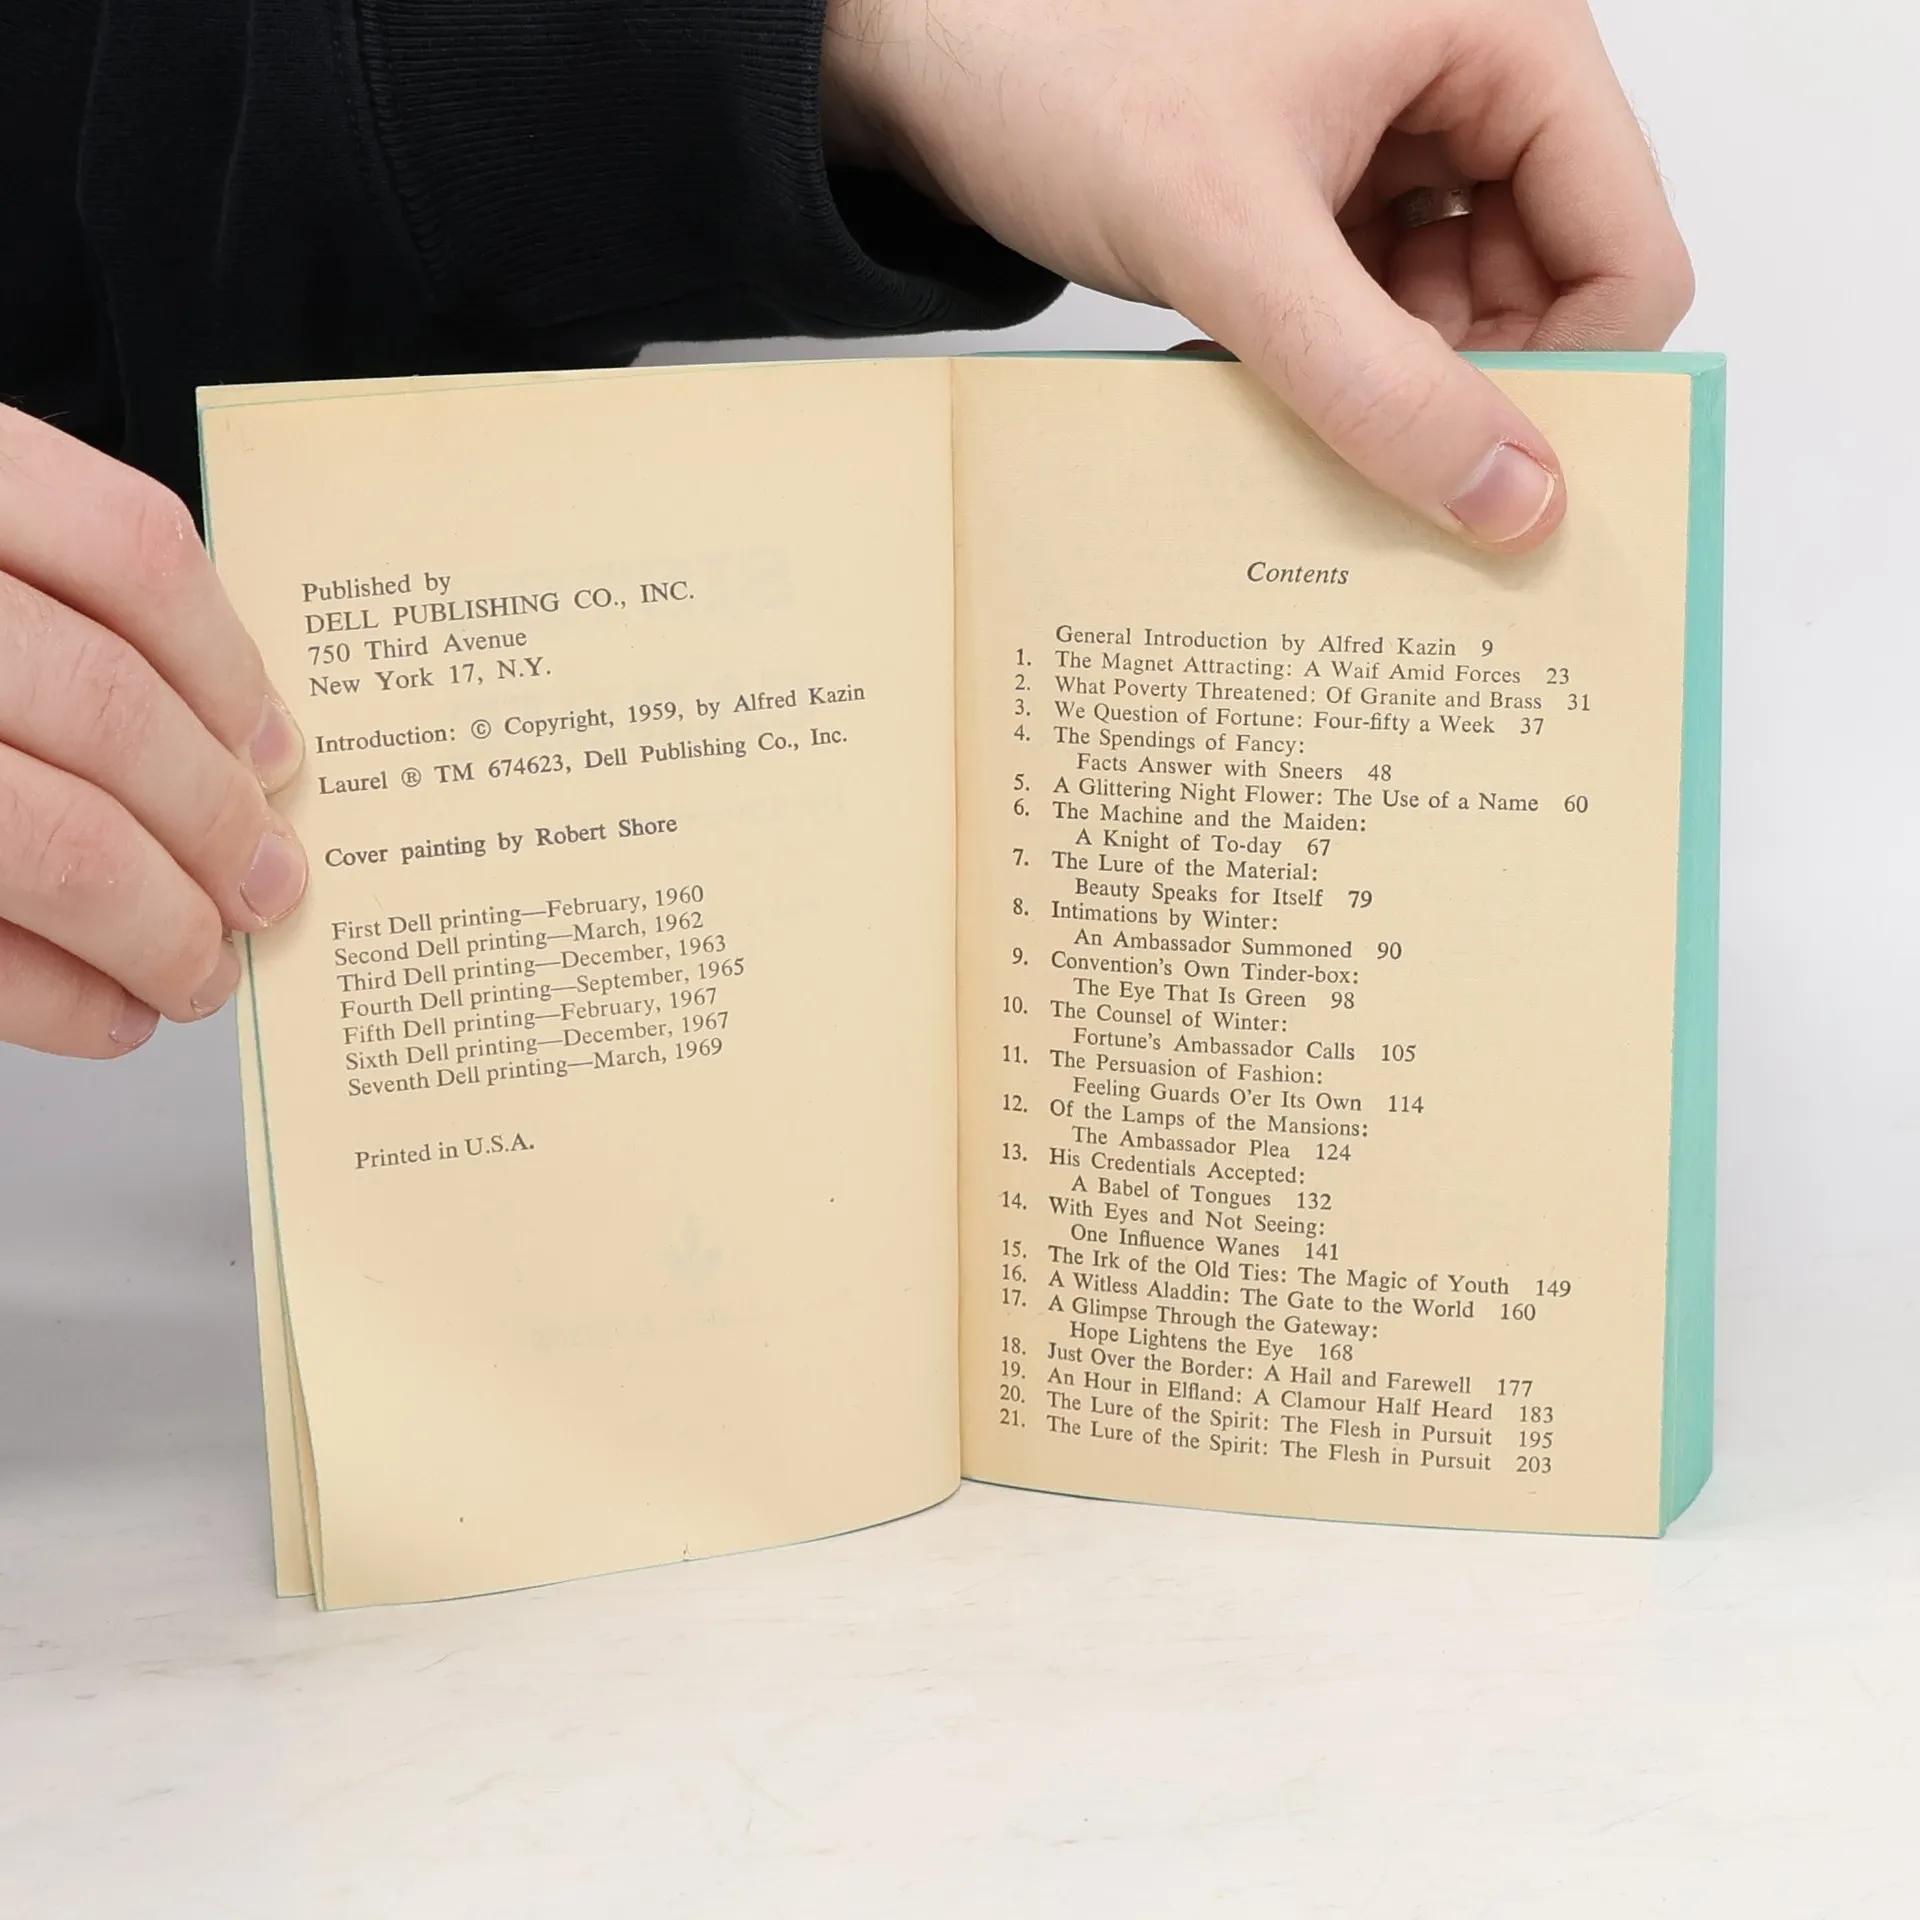 Published by
DELL PUBLISHING CO., INC.
750 Third Avenue
New York 17, N.Y.
Introduction: © Copyright, 1959, by Alfred Kazin
Laurel ® TM 674623, Dell Publishing Co., Inc.
Cover painting by Robert Shore
First Dell printing—February, 1960
Second Dell printing—March, 1962
Third Dell printing—December, 1963
Fourth Dell printing—September, 1965
Fifth Dell printing—February, 1967
Sixth Dell printing—December, 1967
Seventh Dell printing—March, 1969
Printed in U.S.A.
Contents
General Introduction by Alfred Kazin 9
1. The Magnet Attracting: A Waif Amid Forces 23
2. What Poverty Threatened: Of Granite and Brass 31
3. We Question of Fortune: Four-fifty a Week 37
4. The Spendings of Fancy:
Facts Answer with Sneers 48
5. A Glittering Night Flower: The Use of a Name 60
6. The Machine and the Maiden:
A Knight of To-day 67
7. The Lure of the Material:
Beauty Speaks for Itself 79
8. Intimations by Winter:
An Ambassador Summoned 90
9. Convention's Own Tinder-box:
The Eye That Is Green 98
10. The Counsel of Winter:
Fortune's Ambassador Calls 105
11. The Persuasion of Fashion:
Feeling Guards O'er Its Own 114
12. Of the Lamps of the Mansions:
The Ambassador Plea 124
13. His Credentials Accepted:
A Babel of Tongues 132
14. With Eyes and Not Seeing:
One Influence Wanes 141
15. The Irk of the Old Ties: The Magic of Youth 149
16. A Witless Aladdin: The Gate to the World 160
17. A Glimpse Through the Gateway:
Hope Lightens the Eye 168
18. Just Over the Border: A Hail and Farewell 177
19. An Hour in Elfland: A Clamour Half Heard 183
20. The Lure of the Spirit: The Flesh in Pursuit 195
21. The Lure of the Spirit: The Flesh in Pursuit 203